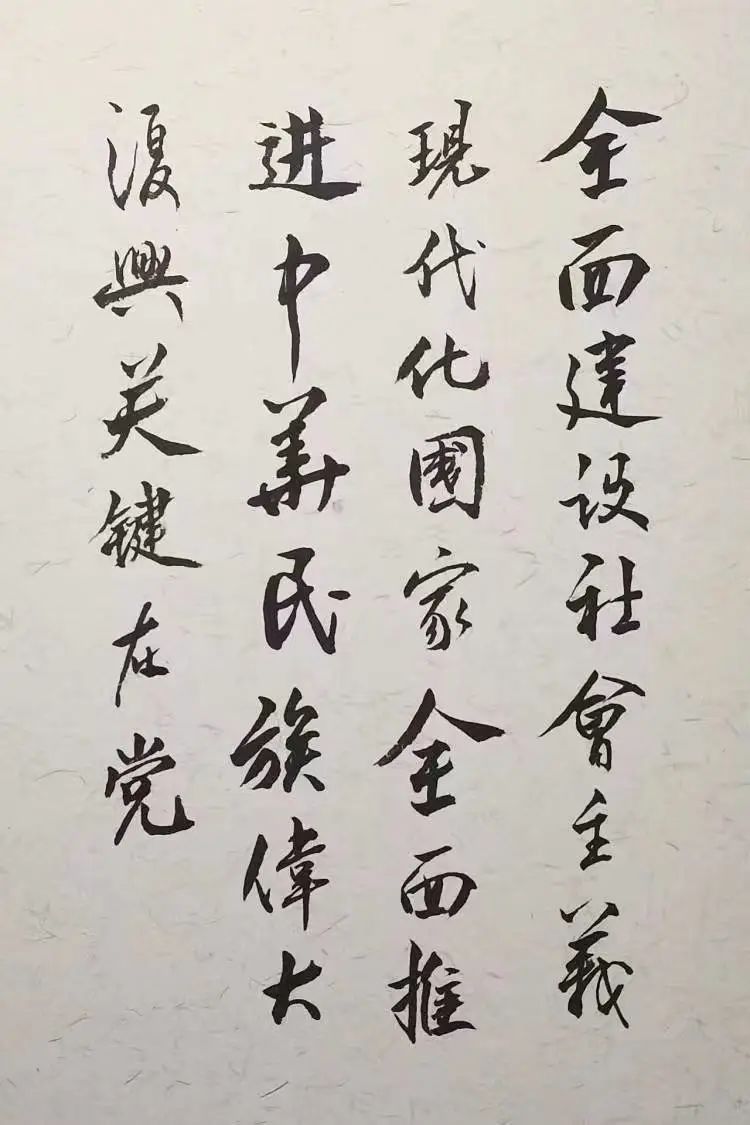 全面建设社會主義
現代化國家全面推
进中華民族偉大
復興关键在党